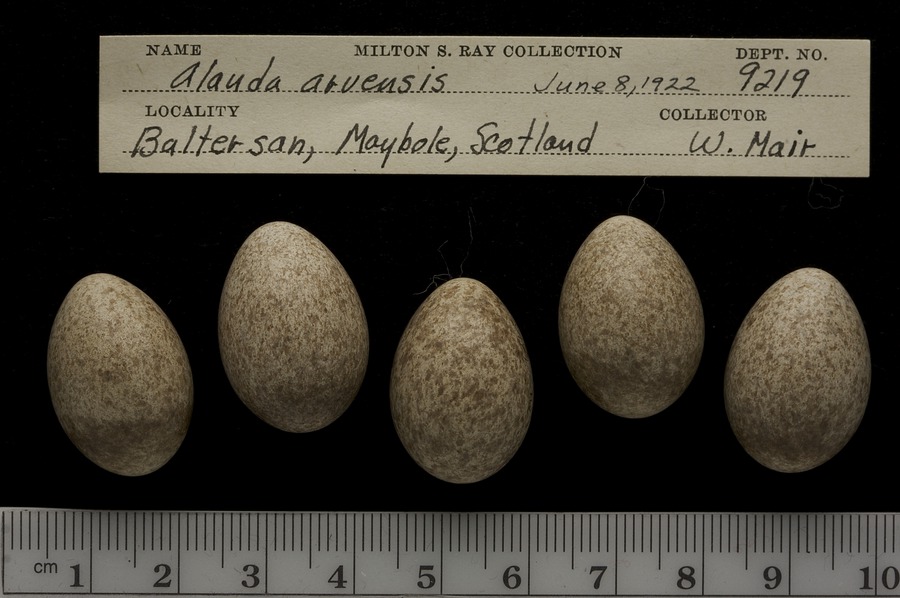 NAME MILTON S. RAY COLLECTION DEPT. NO.
Alauda arvensis June 8, 1922 9219
LOCALITY COLLECTOR
Balter san, Maybole, Scotland W. Mair
cm 1 2 3 4 5 6 7 8 9 10